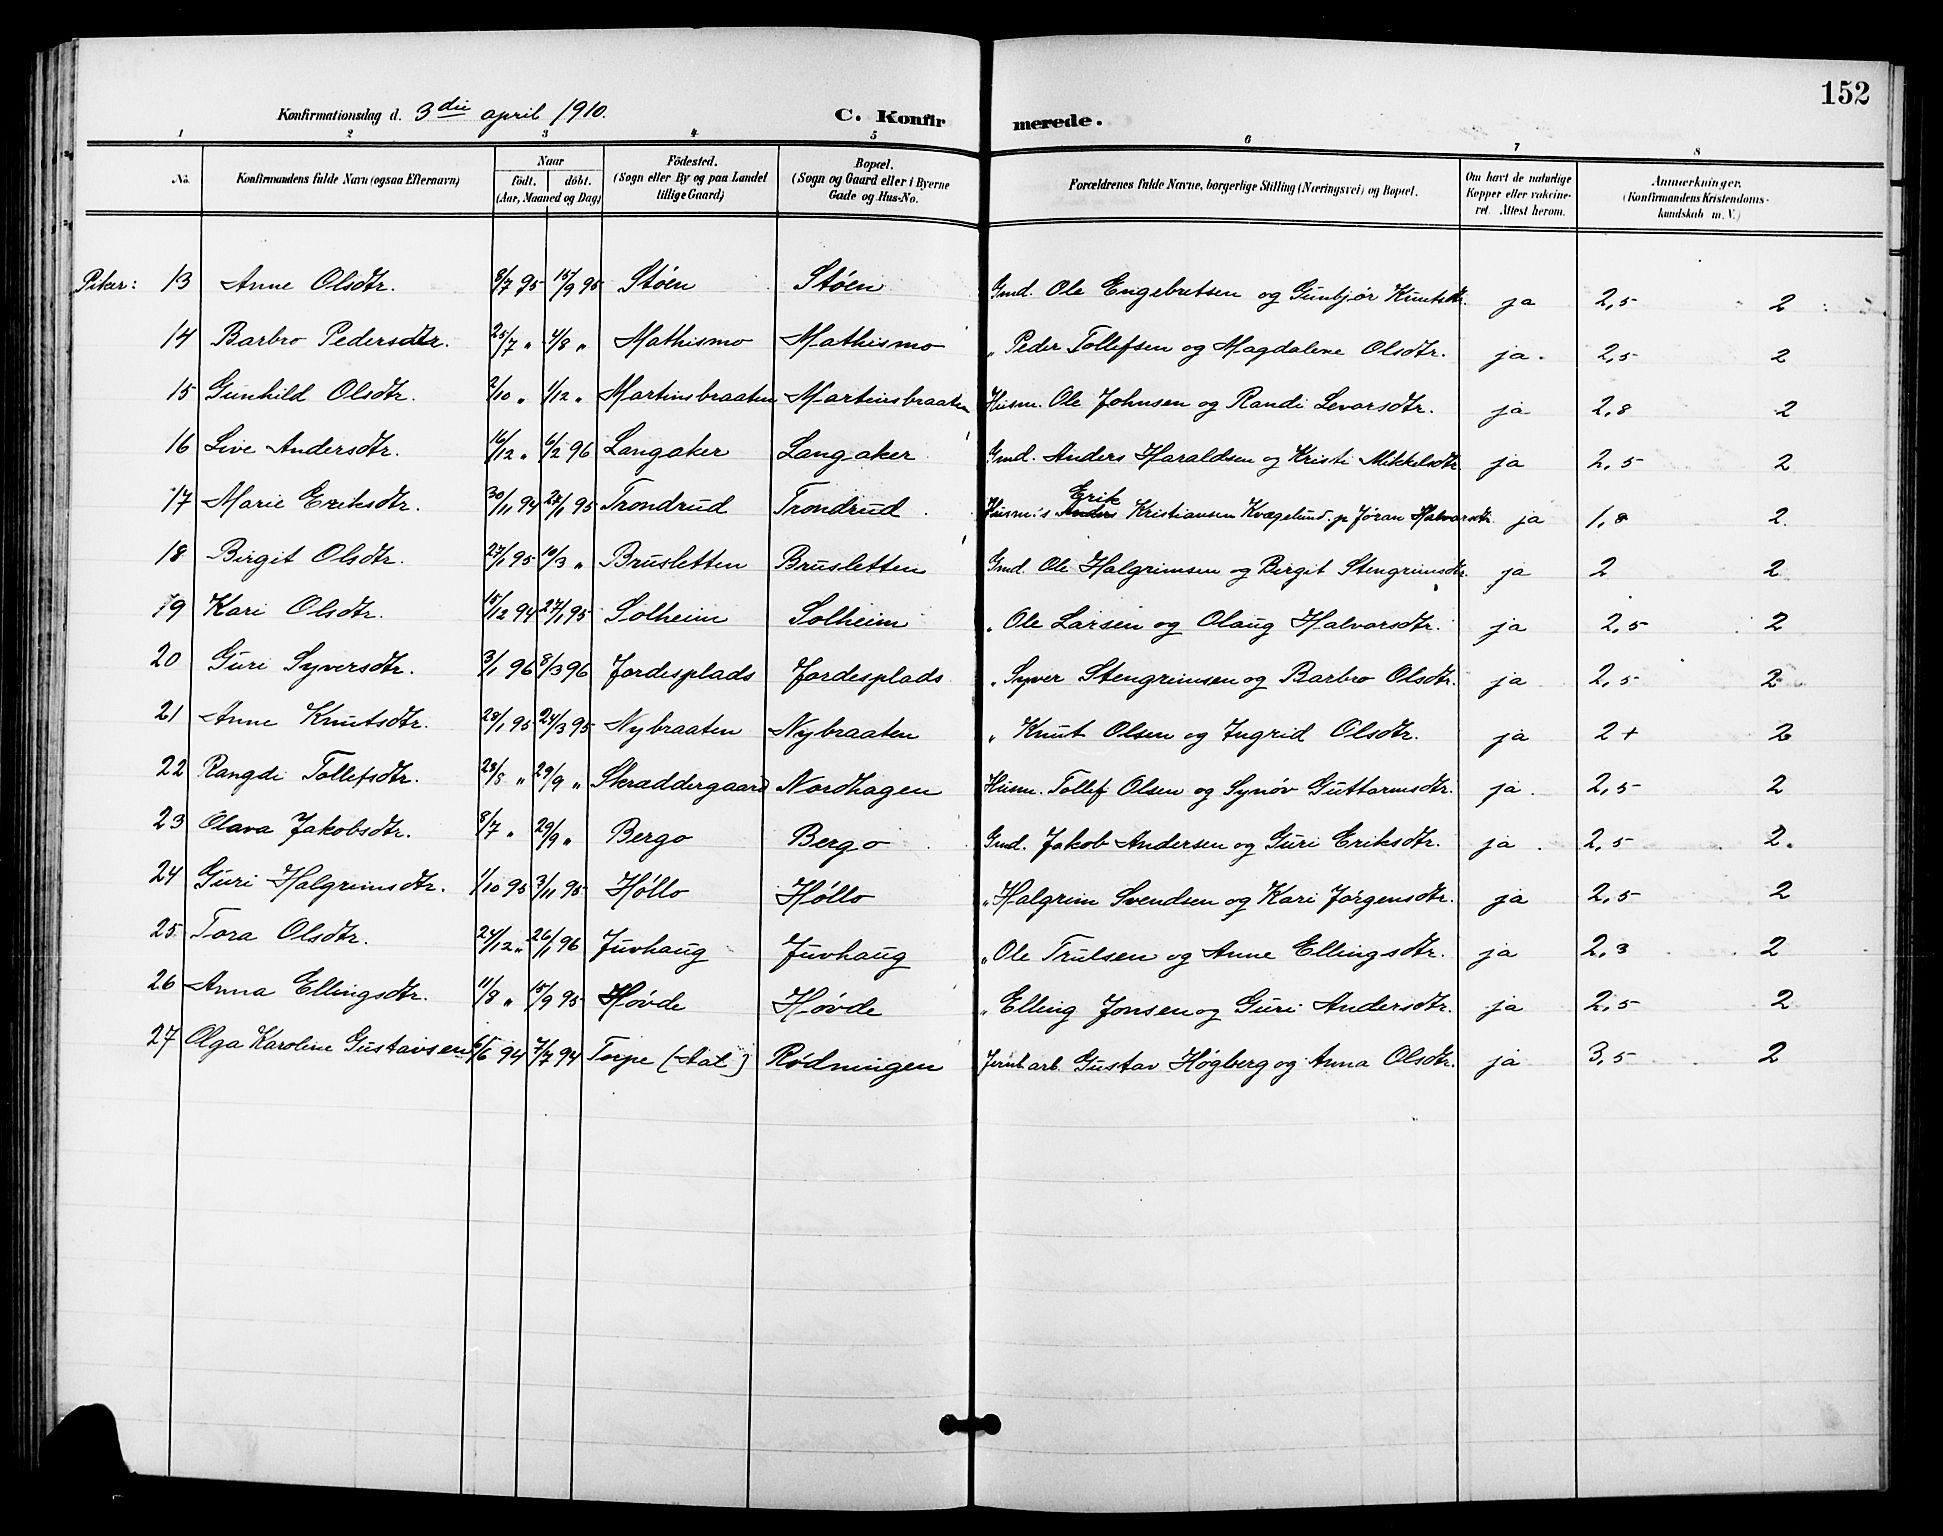 152
Konfirmationsdag d. 3die april 1910. C. Konfirmerede.
1 2 3 4 5 6 7 8
No. Konfirmandens fulde Navn (ogsaa Efternavn) Naar födt. döbt. (Aar, Maaned og Dag) Födested. (Sogn eller By og paa Landet tillige Gaard) Bopæl. (Sogn og Gaard eller i Byerne Gade og Hus-No. Forældrenes fulde Navne, borgerlige Stilling (Næringsvei) og Bopæl. Om havt de naturlige Kopper eller vakcineret. Attest herom. Anmærkninger. (Konfirmandens Kristendomskundskab m. V.)
Piker: 13 Anne Olsdtr. 8/7 95 15/9 95 Stöen Stöen Gmd. Ole Engebretsen og Gunbjör Knutsdtr. ja 2,5 2
14 Barbro Pedersdtr. 25/7 " 4/8 " Mathismo Mathismo " Peder Tollefsen og Magdalene Olsdtr. ja. 2,5 2
15 Gunhild Olsdtr. 2/10 " 1/12 " Martinsbraaten Martinsbraaten Husm. Ole Johnsen og Randi Levorsdtr. ja 2,8 2
16 Live Andersdtr. 16/12 " 6/2 96 Langaker Langaker Gmd. Anders Haraldsen og Kristi Mikkelsdtr ja 2,5 2
17 Marie Eriksdtr. 30/11 94 27/1 95 Trondrud Trondrud Husm.s Anders Erik Kristiansen Kvægelund og Jöran Halvorsdtr. ja 1,8 2
18 Birgit Olsdtr. 27/1 95 10/3 " Brusletten Brusletten Gmd. Ole Halgrimsen og Birgit Stengrimsdtr. ja 2 2
19 Kari Olsdtr. 15/12 94 27/1 95 Solheim Solheim " Ole Larsen og Olaug Halvorsdtr. ja 2,5 2
20 Guri Syversdtr. 3/1 96 8/3 96 Jordesplads Jordesplads " Syver Stengrimsen og Barbro Olsdtr. ja 2,5 2
21 Anne Knutsdtr. 28/1 95 24/3 95 Nybraaten Nybraaten " Knut Olsen og Ingrid Olsdtr. ja 2+ 2
22 Rangdi Tollefsdtr. 28/5 " 29/9 " Skraddergaard Nordhagen Husm. Tollef Olsen og Synöv Guttormsdtr. ja. 2,5 2
23 Olava Jakobsdtr. 8/7 " 29/9 " Bergo Bergo Gmd. Jakob Andersen og Guri Eriksdtr. ja. 2,5 2.
24 Guri Halgrimsdtr. 1/10 95 3/11 95 Höllo Höllo " Halgrim Svendsen og Kari Jörgensdtr. ja 2,5 2
25 Tora Olsdtr. 24/12 " 26/1 96 Juvhaug Juvhaug " Ole Trulsen og Anne Ellingsdtr. ja 2,3 2
26 Anna Ellingsdtr. 11/8 " 15/9 95 Hövde Hövde " Elling Jonsen og Guri Andersdtr. ja 2,5 2
27 Olga Karoline Gustavsen 6/6 94 7/7 94 Torpe (Aal) Rödningen Jernb.arb. Gustav Högberg og Anna Olsdtr. ja 3,5 2